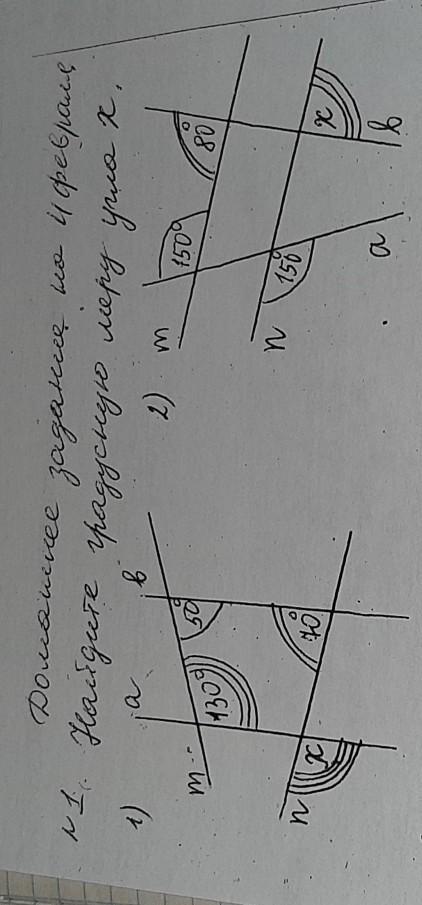 Домашнее задание на 4 февраля
№ 1. Найдите градусную меру угла x.
1)
a
b
m
130°
50°
n
x
70°
2)
m
150°
80°
n
150°
x
a
b